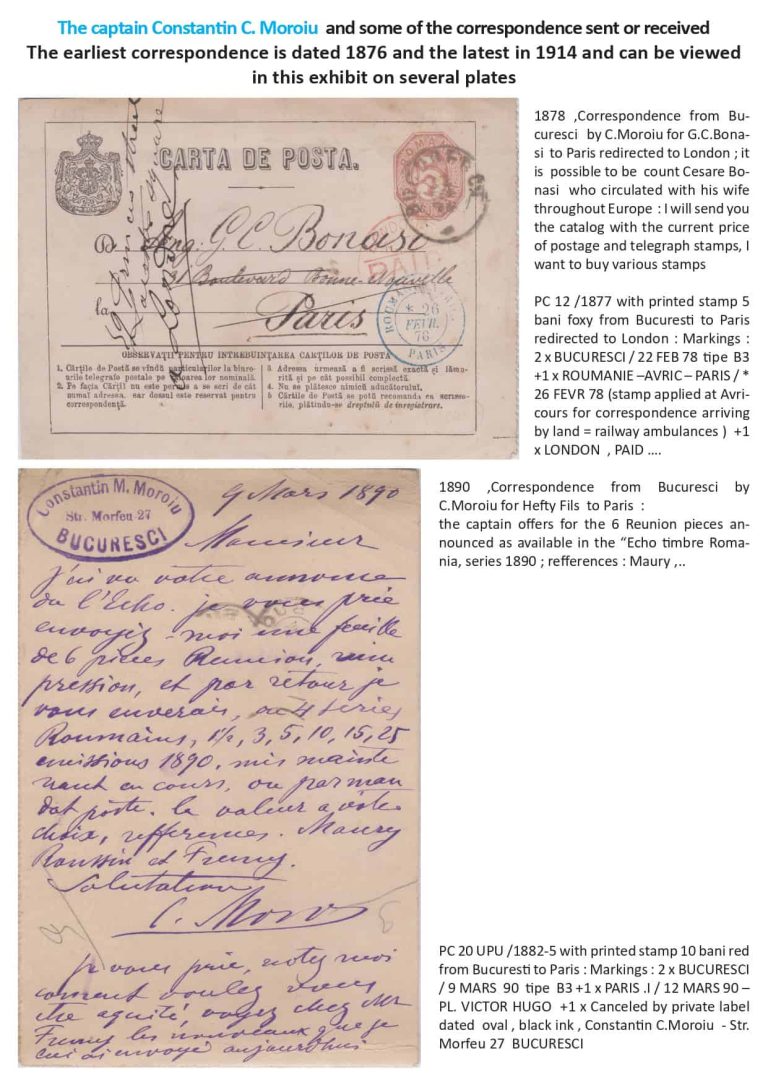 The captain Constantin C. Moroiu and some of the correspondence sent or received
The earliest correspondence is dated 1876 and the latest in 1914 and can be viewed
in this exhibit on several plates
CARTA DE POSTA.
D. Ing. G. C. Bonasi
Boulevard Bonne-Nouvelle
la Paris
London
PAID
* 26
FEVR
78
PARIS
OBSERVAȚII PENTRU ÎNTREBUINȚAREA CARȚILOR DE POSTA
1. Cărțile de Postă se vîndă particularilor la birou-
rile telegrafo postale pe valoarea lor nominală.
2. Pe facia Cărții nu este permis a se scri de cât
numai adresa, ear dosul este reservat pentru
correspondență.
3 Adressa urmează a fi scrisă exactă și lămu-
rită și pe cât possibil complectă.
4. Nu se plătesce nimică aducătorului.
5 Cărțile de Postă se potă recomanda ca scriso-
rile, plătindu-se dreptulŭ de înregistrare.
1878 ,Correspondence from Bu-
curesci by C.Moroiu for G.C.Bona-
si to Paris redirected to London ; it
is possible to be count Cesare Bo-
nasi who circulated with his wife
throughout Europe : I will send you
the catalog with the current price
of postage and telegraph stamps, I
want to buy various stamps
PC 12 /1877 with printed stamp 5
bani foxy from Bucuresti to Paris
redirected to London : Markings :
2 x BUCURESCI / 22 FEB 78 tipe B3
+1 x ROUMANIE –AVRIC – PARIS / *
26 FEVR 78 (stamp applied at Avri-
cours for correspondence arriving
by land = railway ambulances ) +1
x LONDON , PAID ....
Constantin M. Moroiu
Str. Morfeu-27
BUCURESCI
9 Mars 1890
Monsieur
J'ai vu votre annonce
du l'Echo. je vous prie
envoyiz-moi une feuille
de 6 pièces Reunion,
pression, et par retour je
vous enverais, ou 4 séries
Roumains, 1½, 3, 5, 10, 15, 25
emissions 1890, mis mainte
nant en cours, ou par man
dat poste. la valeur a votre
choix, refferences. Maury
Roussin et Fremy.
Salutation
C. Moroiu
Je vous prie, notez moi
coment voulez vous
etre aquité, voyez chez Mr
Fremy les nouveaux que je
lui ai envoyé aujourd'hui
1890 ,Correspondence from Bucuresci by
C.Moroiu for Hefty Fils to Paris :
the captain offers for the 6 Reunion pieces an-
nounced as available in the “Echo timbre Roma-
nia, series 1890 ; refferences : Maury ,..
PC 20 UPU /1882-5 with printed stamp 10 bani red
from Bucuresti to Paris : Markings : 2 x BUCURESCI
/ 9 MARS 90 tipe B3 +1 x PARIS .I / 12 MARS 90 –
PL. VICTOR HUGO +1 x Canceled by private label
dated oval , black ink , Constantin C.Moroiu - Str.
Morfeu 27 BUCURESCI